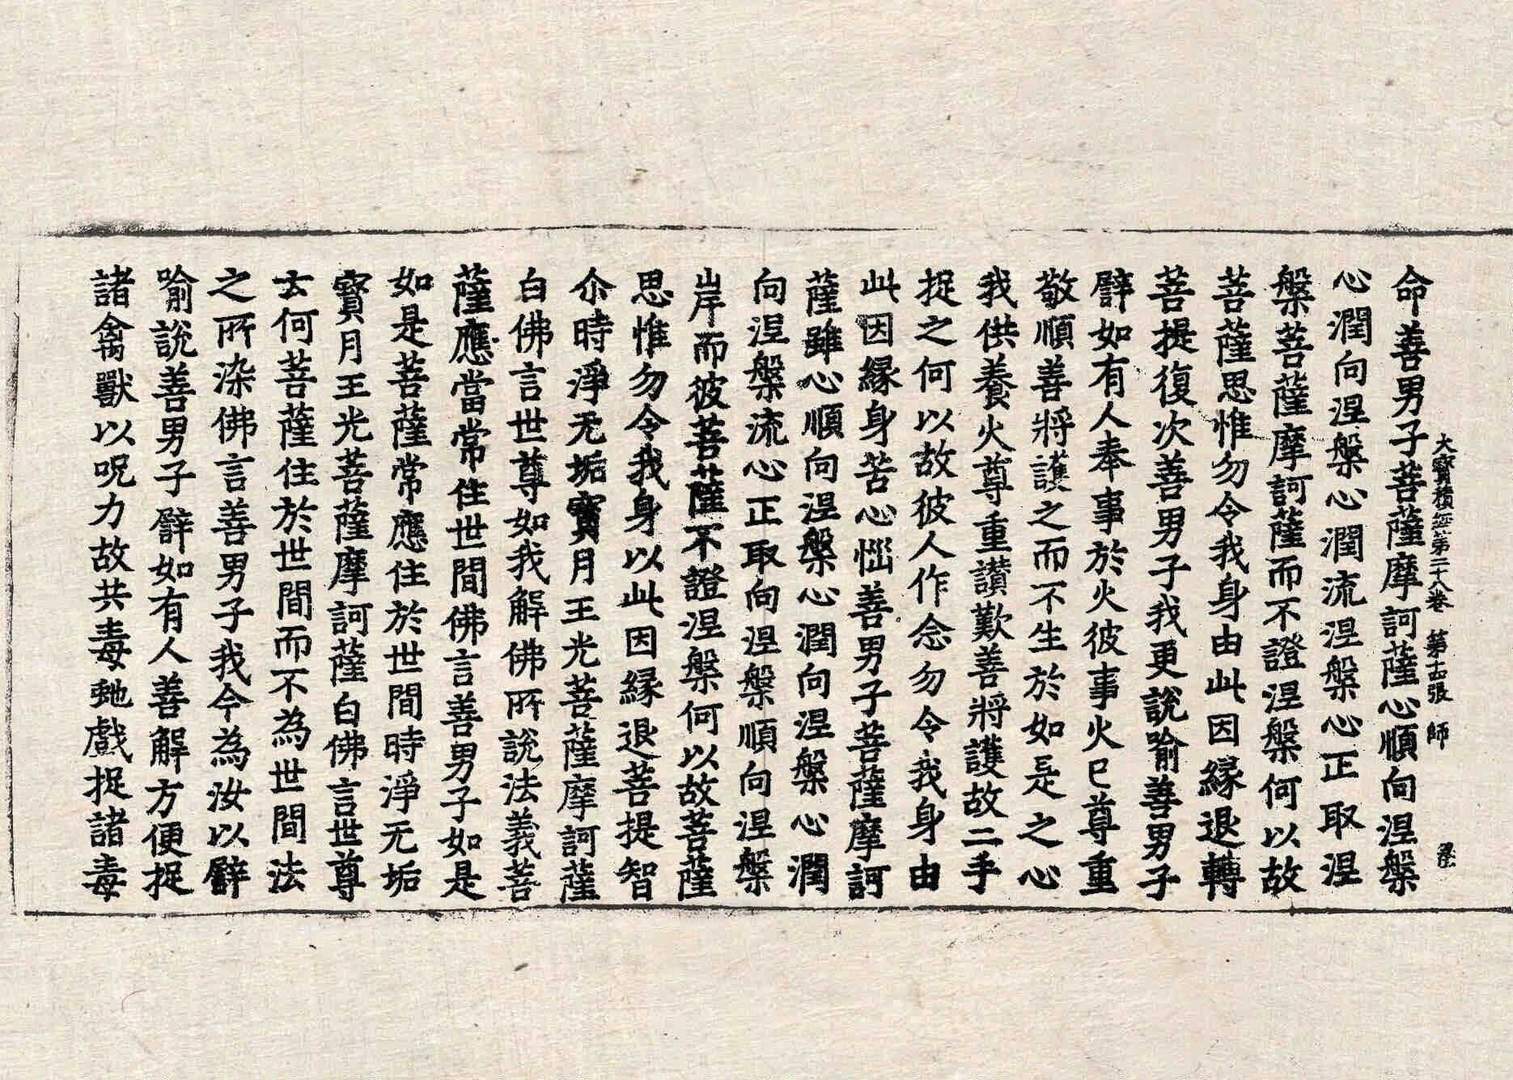 大寶積經第二十八卷 第十五張 師
命善男子菩薩摩訶薩心順向涅槃
心潤向涅槃心潤流涅槃心正取涅
槃菩薩摩訶薩而不證涅槃何以故
菩薩思惟勿令我身由此因緣退轉
菩提復次善男子我更說喻善男子
譬如有人奉事於火彼事火已尊重
敬順善將護之而不生於如是之心
我供養火尊重讃歎善將護故二手
捉之何以故彼人作念勿令我身由
此因緣身苦心惱善男子菩薩摩訶
薩雖心順向涅槃心潤向涅槃心潤
向涅槃流心正取向涅槃順向涅槃
岸而彼菩薩不證涅槃何以故菩薩
思惟勿令我身以此因緣退菩提智
尒時淨无垢寶月王光菩薩摩訶薩
白佛言世尊如我解佛所說法義菩
薩應當常住世間佛言善男子如是
如是菩薩常應住於世間時淨无垢
寶月王光菩薩摩訶薩白佛言世尊
云何菩薩住於世間而不為世間法
之所染佛言善男子我今為汝以譬
喻說善男子譬如有人善解方便捉
諸禽獸以呪力故共毒虵戲捉諸毒